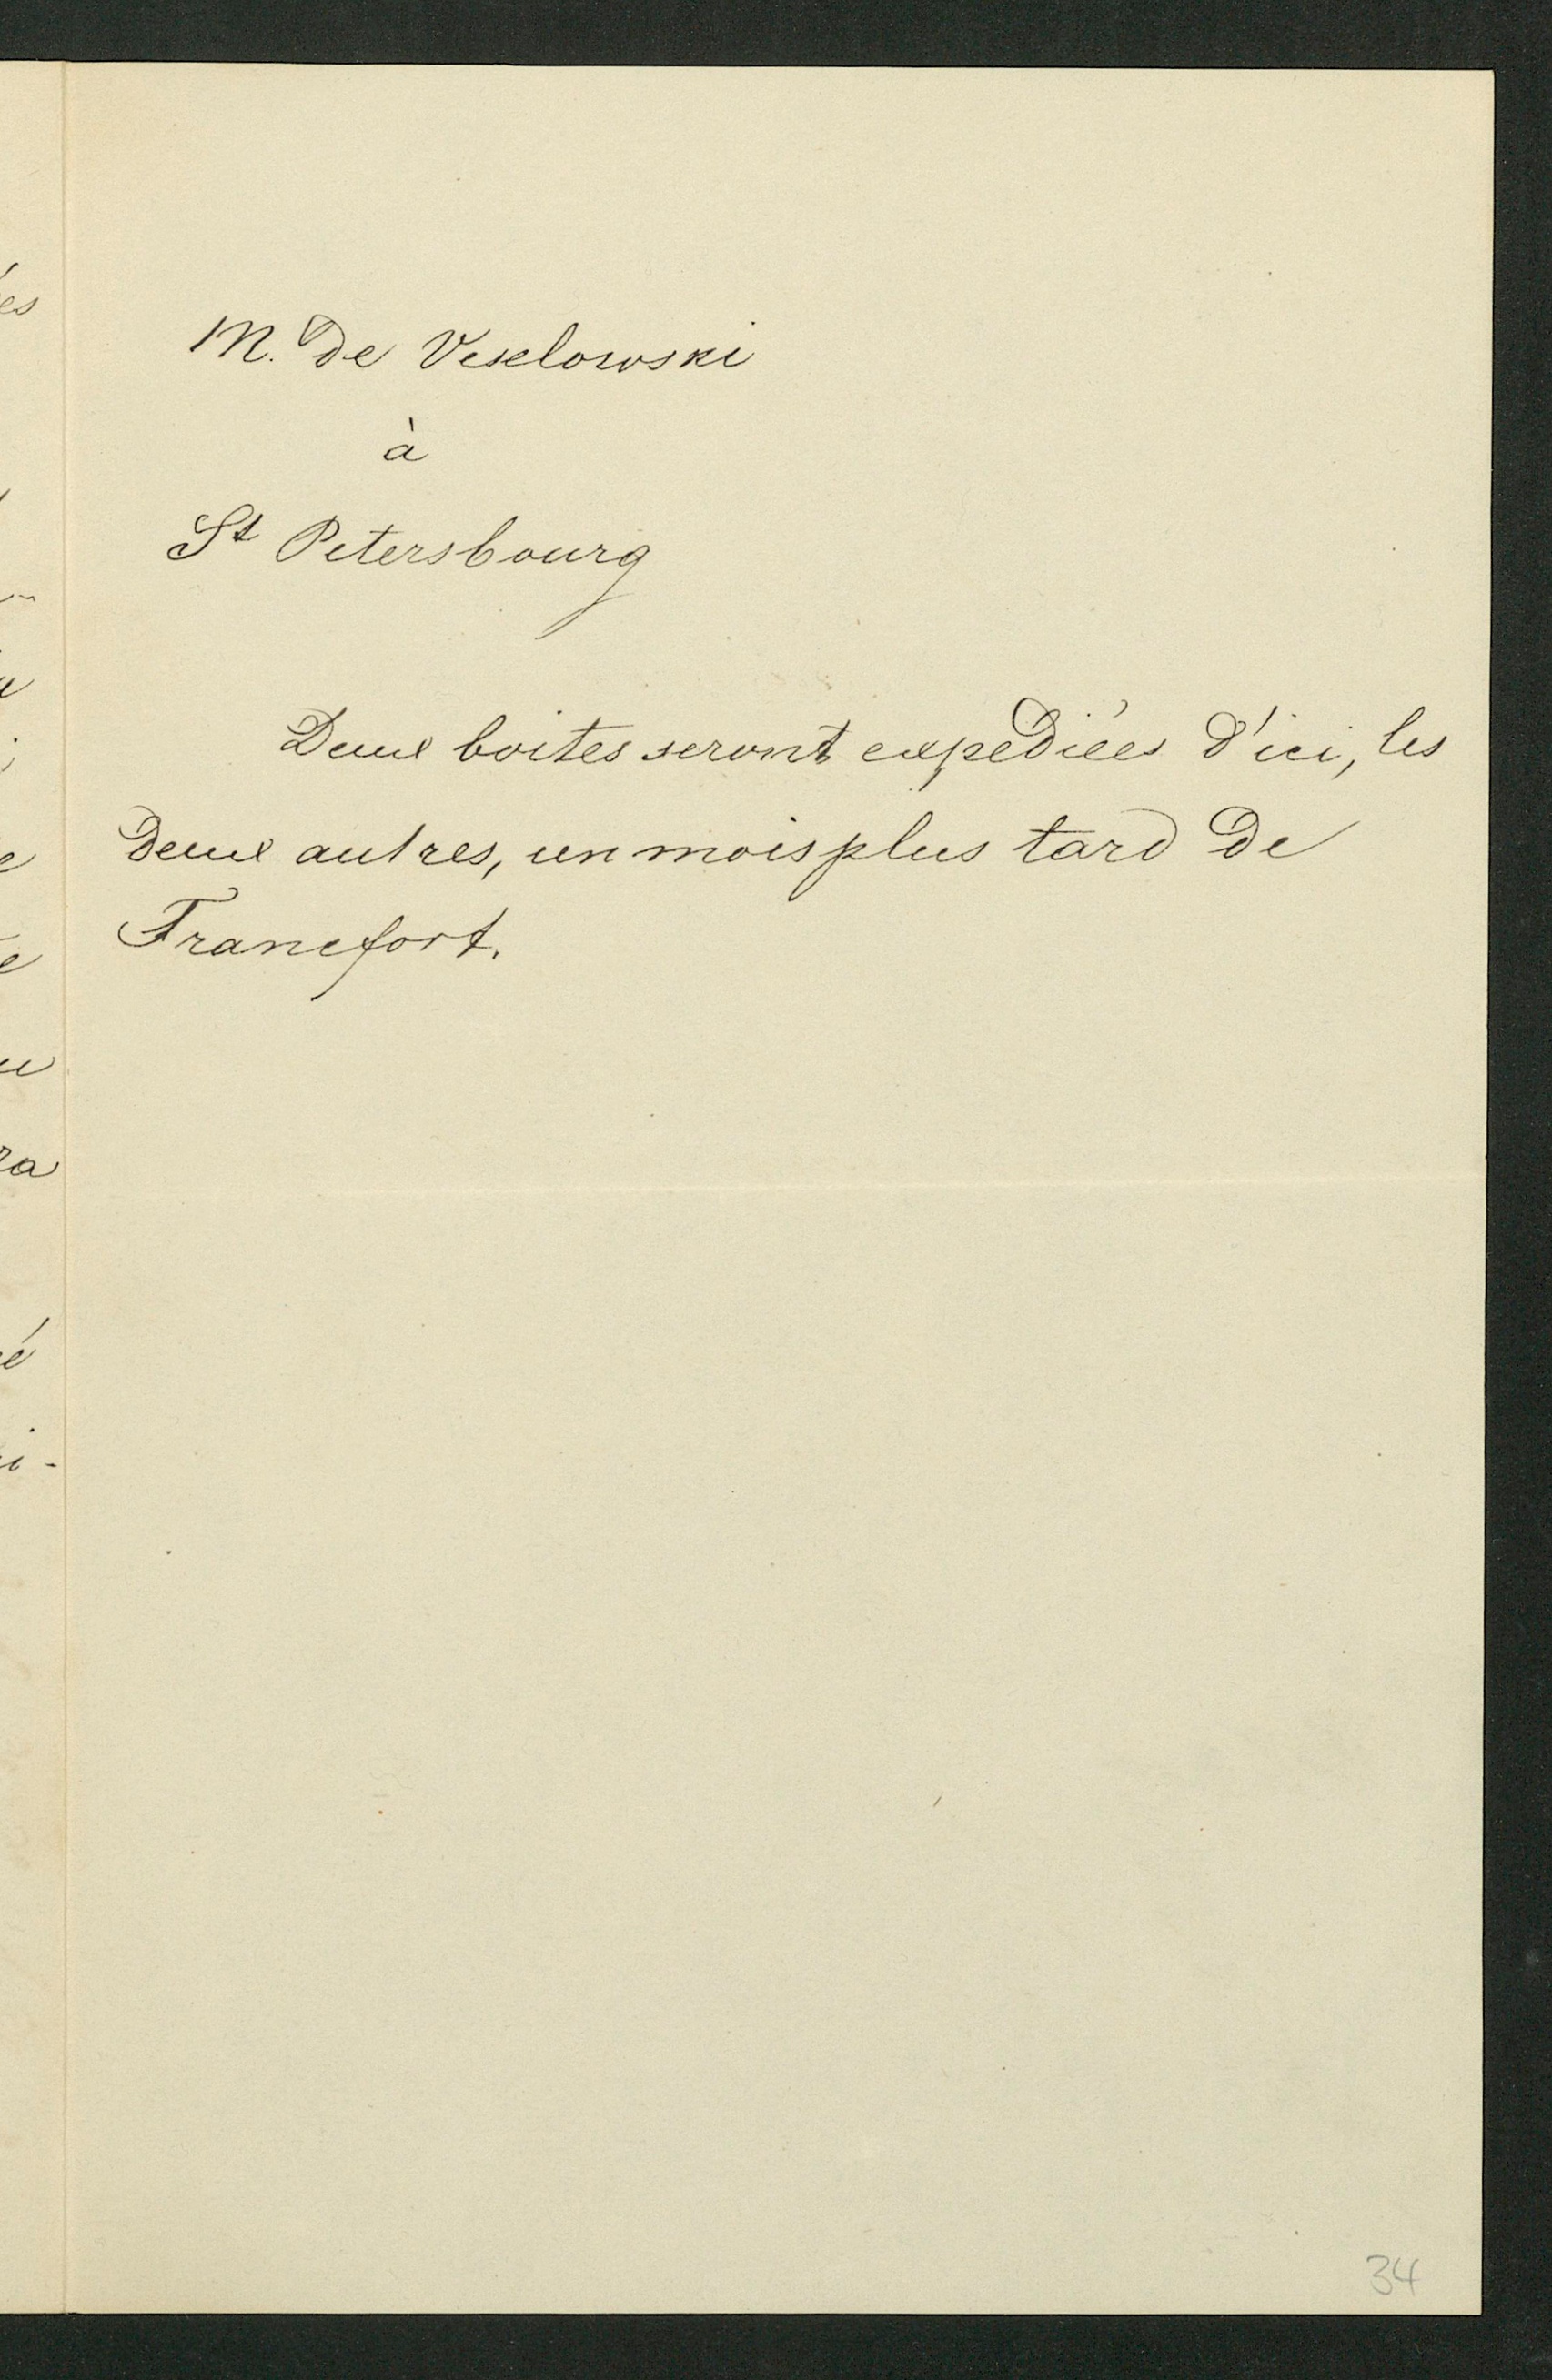 M. de Veselowski
à
St Petersbourg
Deux boites seront expediées d'ici, les
deux autres, un mois plus tard de
Francfort.
34